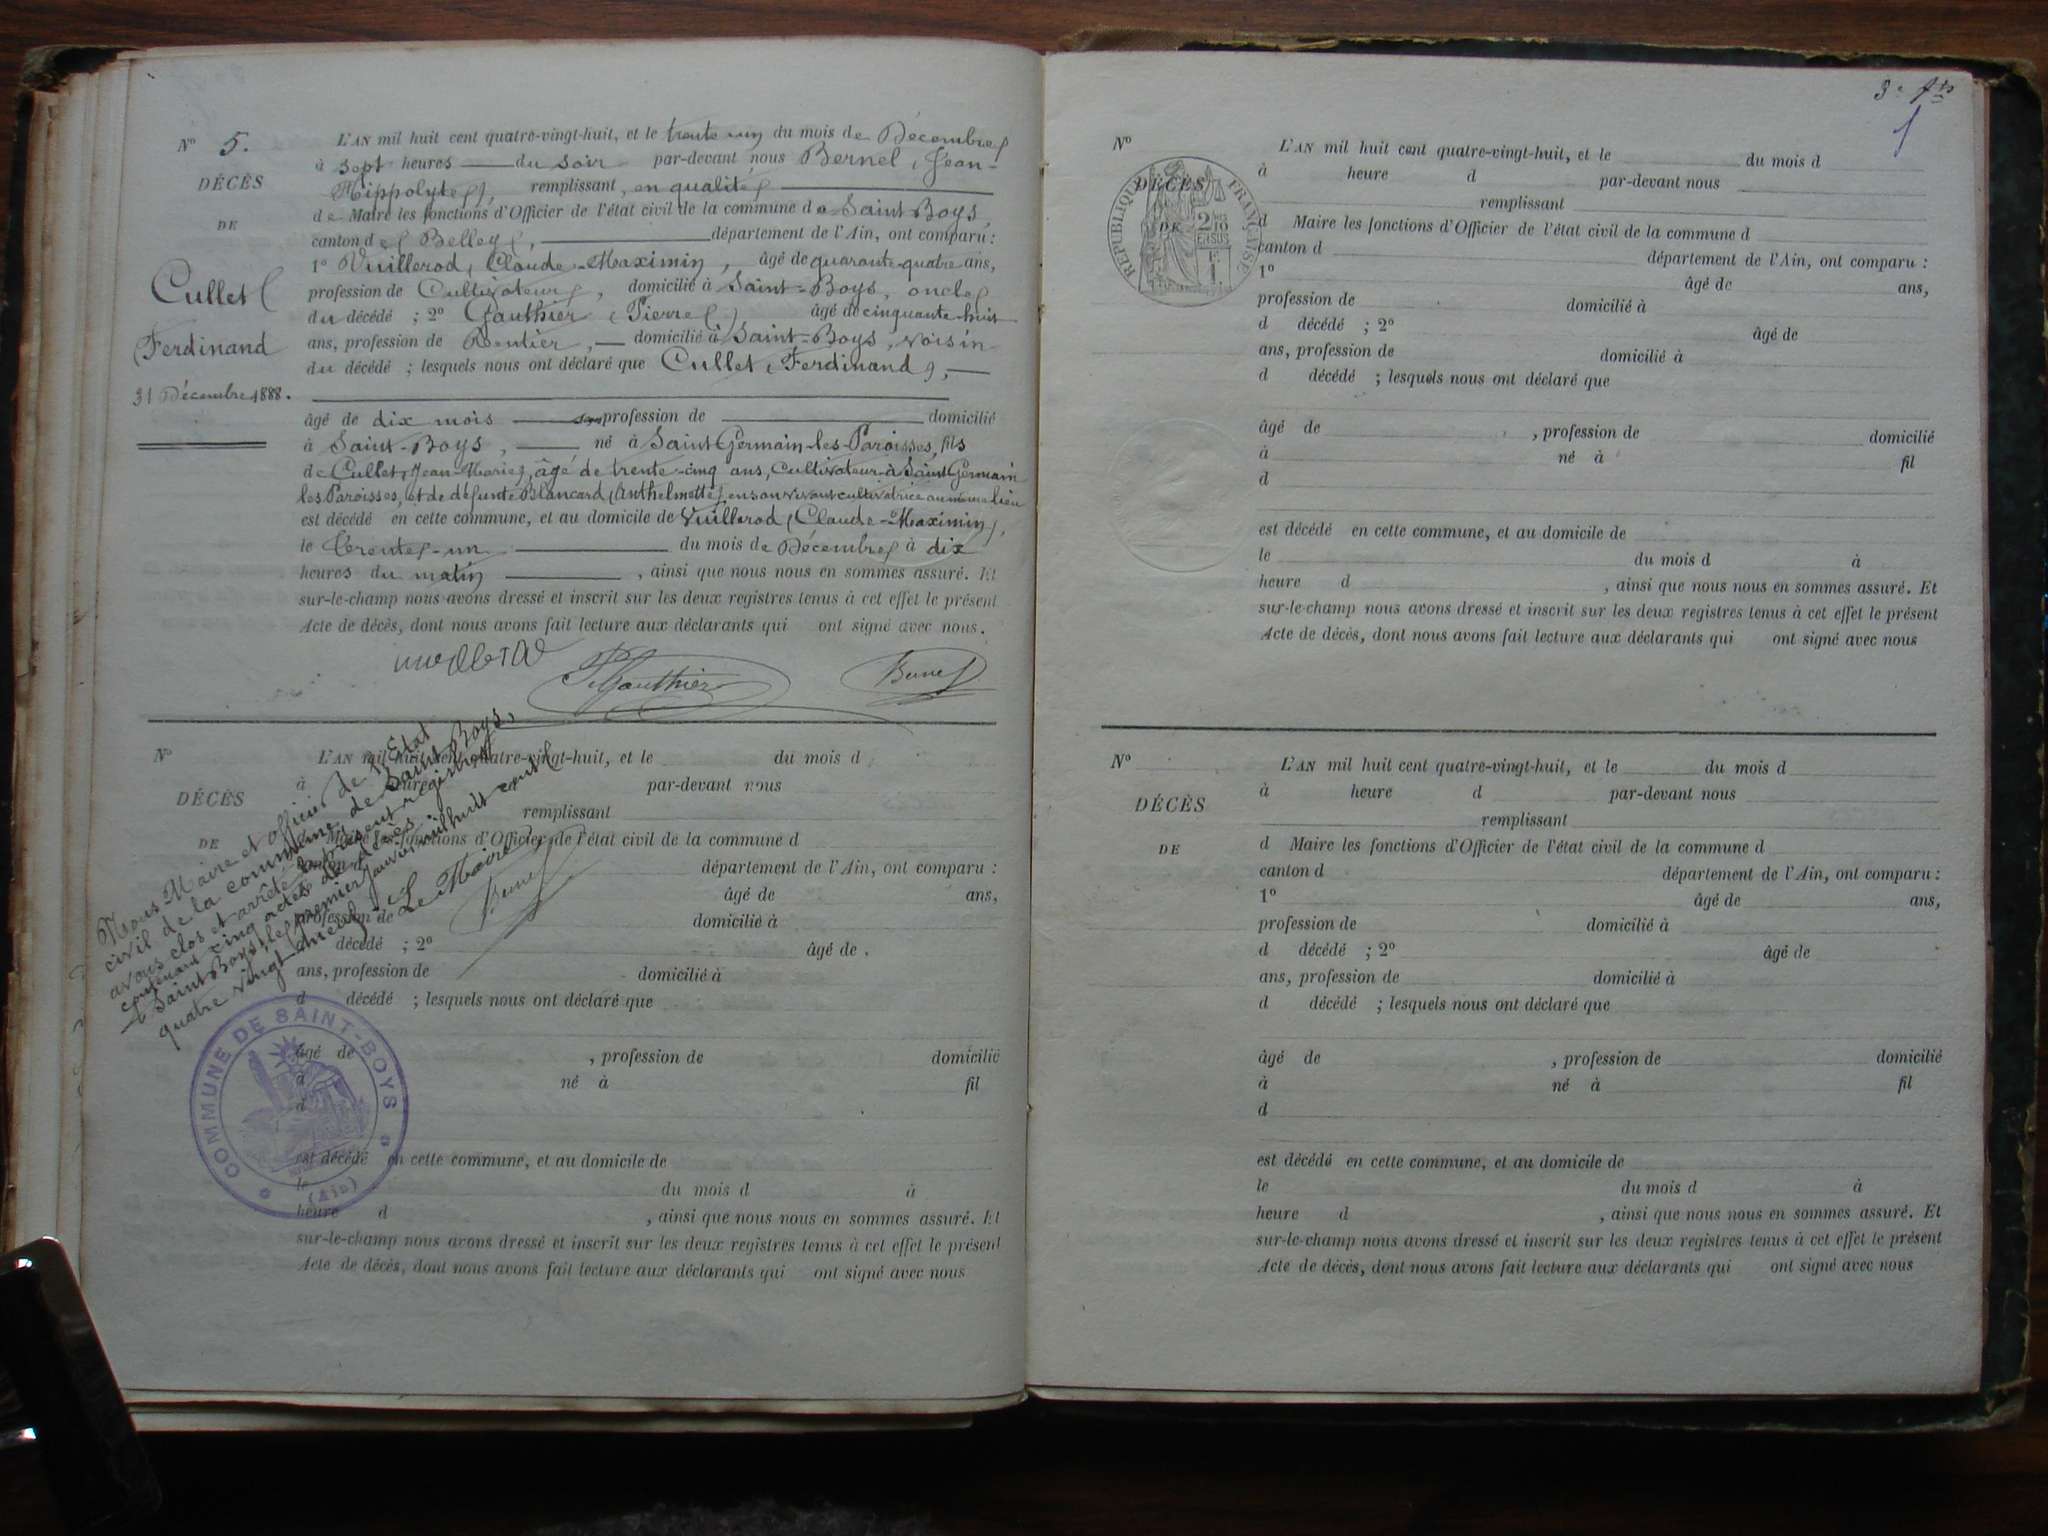 N° 5.
DÉCÈS
DE
Cullet
Ferdinand
31 Décembre 1888.
L'AN mil huit cent quatre-vingt-huit, et le trente un du mois de Décembre
à sept heures du soir par-devant nous Bernel, Jean-
Hippolyte, remplissant, en qualité
de Maire les fonctions d'Officier de l'état civil de la commune de Saint-Boys,
canton de Belley, département de l'Ain, ont comparu :
1° Vuillerod, Claude-Maximin, âgé de quarante-quatre ans,
profession de Cultivateur, domicilié à Saint-Boys, oncle
du décédé ; 2° Gauthier (Pierre), âgé de cinquante-huit
ans, profession de Rentier, domicilié à Saint-Boys, voisin
du décédé ; lesquels nous ont déclaré que Cullet, Ferdinand,
âgé de dix mois profession de domicilié
à Saint-Boys, né à Saint Germain-les-Paroisses, fils
de Cullet, Jean-Marie, âgé de trente-cinq ans, Cultivateur à Saint Germain
les Paroisses, et de défunte Blancard (Anthelmette) en son vivant cultivatrice au même lieu
est décédé en cette commune, et au domicile de Vuillerod (Claude-Maximin),
le trente-un du mois de Décembre à dix
heures du matin, ainsi que nous nous en sommes assuré. Et
sur-le-champ nous avons dressé et inscrit sur les deux registres tenus à cet effet le présent
Acte de décès, dont nous avons fait lecture aux déclarants qui ont signé avec nous.
P Gauthier
Bernel
N°
DÉCÈS
DE
L'AN mil huit cent quatre-vingt-huit, et le du mois d
à heure par-devant nous
remplissant
d Maire les fonctions d'Officier de l'état civil de la commune d
canton d département de l'Ain, ont comparu :
âgé de ans,
profession de domicilié à
d décédé ; 2° âgé de
ans, profession de domicilié à
d décédé ; lesquels nous ont déclaré que
âgé de , profession de domicilié
à né à fil
d
est décédé en cette commune, et au domicile de
le du mois d à
heure d , ainsi que nous nous en sommes assuré. Et
sur-le-champ nous avons dressé et inscrit sur les deux registres tenus à cet effet le présent
Acte de décès, dont nous avons fait lecture aux déclarants qui ont signé avec nous
Nous Maire et officier de l'Etat
civil de la commune de Saint Boys,
avons clos et arrêté le présent registre
contenant cinq actes de décès.
Saint Boys, le premier janvier mil huit cent
quatre vingt neuf. Le Maire
Bernel
COMMUNE DE SAINT-BOYS
(Ain)
N°
DÉCÈS
DE
RÉPUBLIQUE FRANÇAISE
2/10 EN SUS
L'AN mil huit cent quatre-vingt-huit, et le du mois d
à heure d par-devant nous
remplissant
d Maire les fonctions d'Officier de l'état civil de la commune d
canton d département de l'Ain, ont comparu :
1° âgé de ans,
profession de domicilié à
d décédé ; 2° âgé de
ans, profession de domicilié à
d décédé ; lesquels nous ont déclaré que
âgé de , profession de domicilié
à né à fil
d
est décédé en cette commune, et au domicile de
le du mois d à
heure d , ainsi que nous nous en sommes assuré. Et
sur-le-champ nous avons dressé et inscrit sur les deux registres tenus à cet effet le présent
Acte de décès, dont nous avons fait lecture aux déclarants qui ont signé avec nous
N°
DÉCÈS
DE
L'AN mil huit cent quatre-vingt-huit, et le du mois d
à heure d par-devant nous
remplissant
d Maire les fonctions d'Officier de l'état civil de la commune d
canton d département de l'Ain, ont comparu :
1° âgé de ans,
profession de domicilié à
d décédé ; 2° âgé de
ans, profession de domicilié à
d décédé ; lesquels nous ont déclaré que
âgé de , profession de domicilié
à né à fil
d
est décédé en cette commune, et au domicile de
le du mois d à
heure d , ainsi que nous nous en sommes assuré. Et
sur-le-champ nous avons dressé et inscrit sur les deux registres tenus à cet effet le présent
Acte de décès, dont nous avons fait lecture aux déclarants qui ont signé avec nous